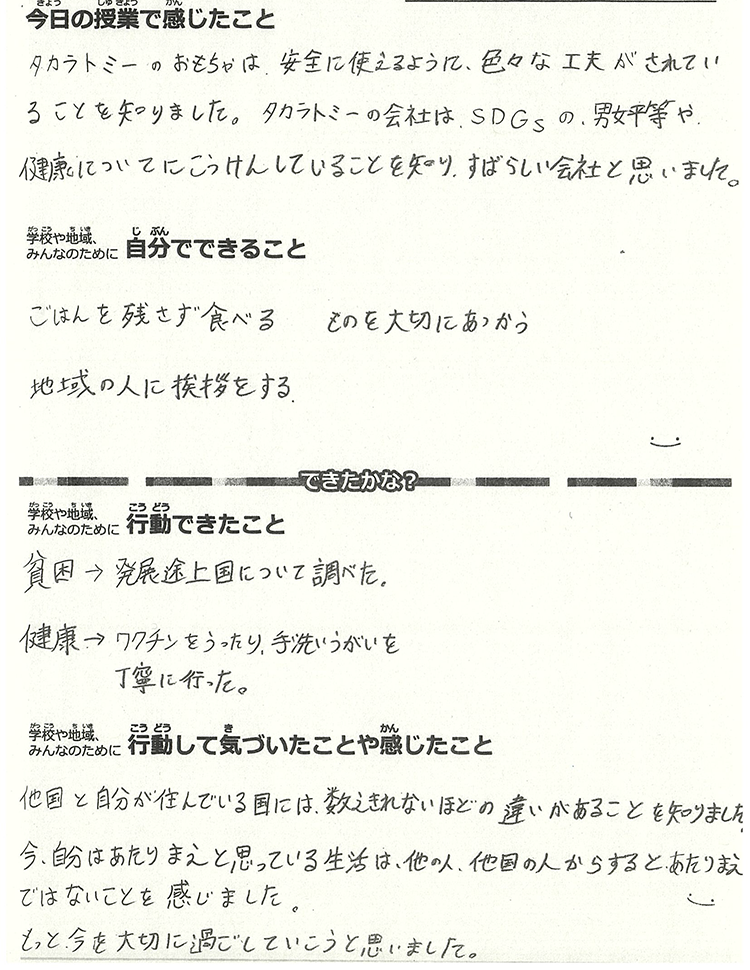 今日の授業で感じたこと
タカラトミーのおもちゃは、安全に使えるように、色々な工夫がされてい
ることを知りました。タカラトミーの会社は、SDGsの、男女平等や、
健康についてにこうけんしていることを知り、すばらしい会社と思いました。
学校や地域、みんなのために 自分でできること
ごはんを残さず食べる ものを大切にあつかう
地域の人に挨拶をする
できたかな?
学校や地域、みんなのために 行動できたこと
貧困→発展途上国について調べた。
健康→ワクチンをうったり、手洗いうがいを
丁寧に行った。
学校や地域、みんなのために 行動して気づいたことや感じたこと
他国と自分が住んでいる国には、数えきれないほどの違いがあることを知りました
今、自分はあたりまえと思っている生活は、他の人、他国の人からすると、あたりまえ
ではないことを感じました。
もっと、今を大切に過ごしていこうと思いました。